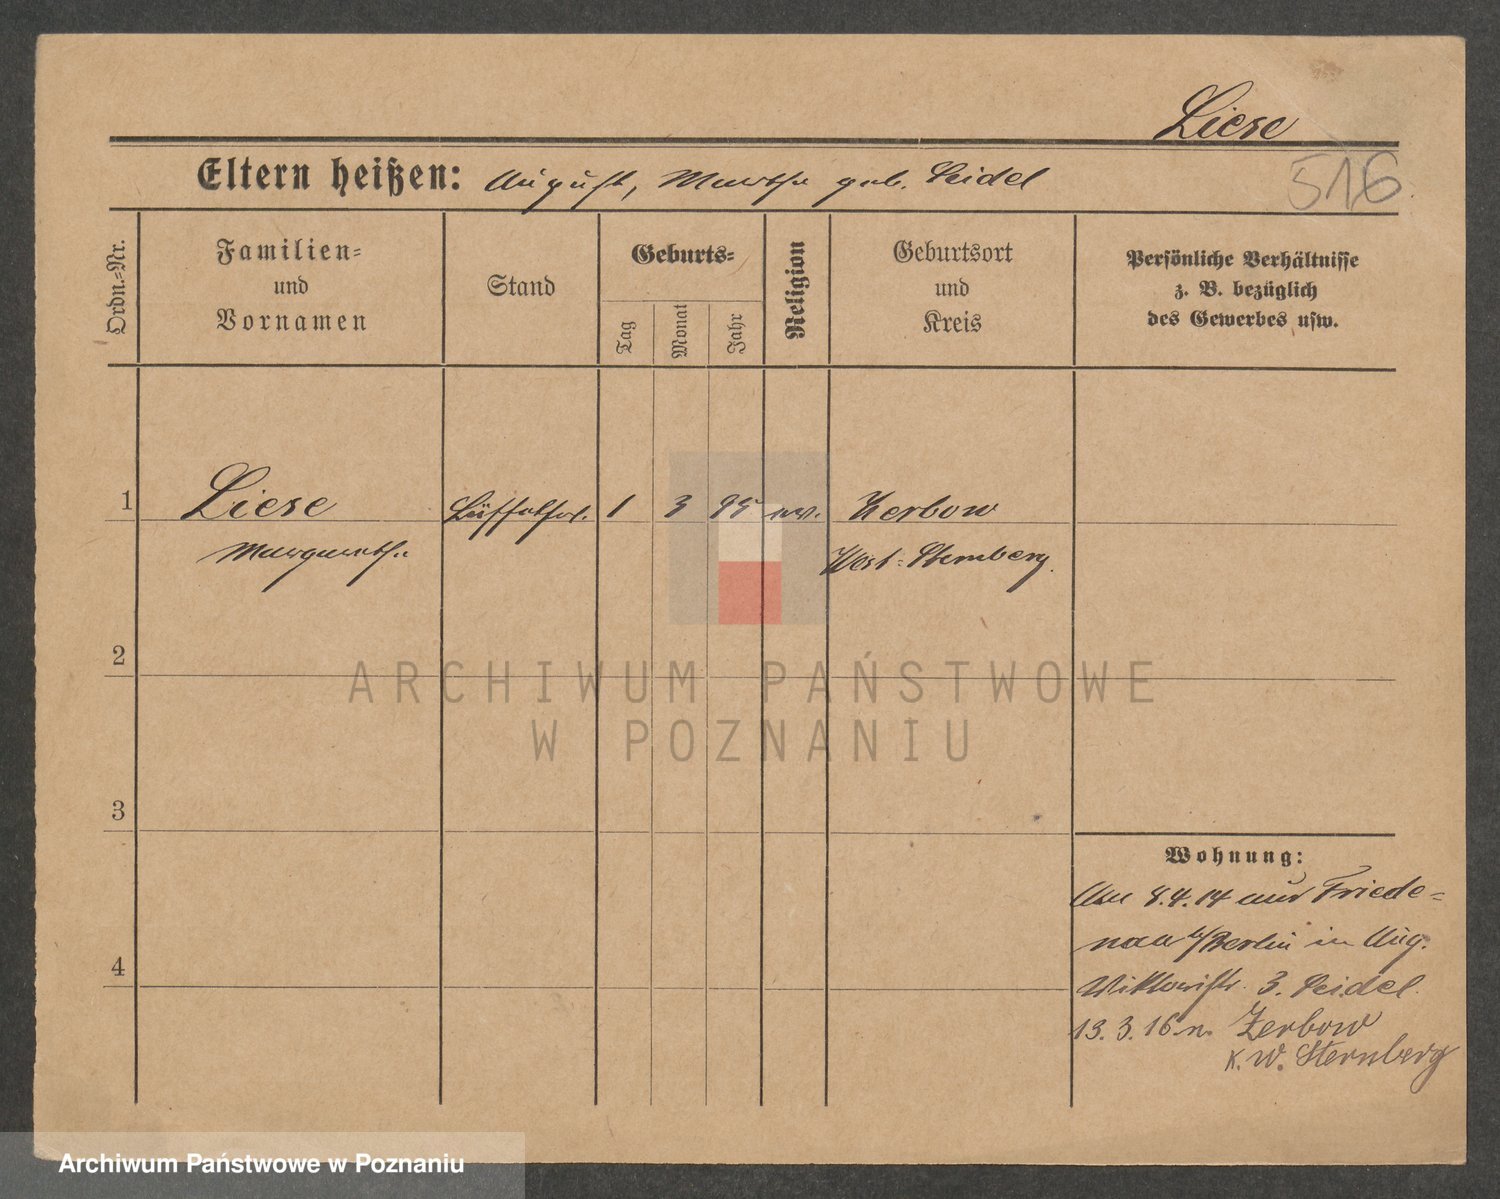 Liese
516
Eltern heißen: August, Martha geb. Seidel
Ordn.-Nr.
Familien-
und
Vornamen
Stand
Geburts-
Tag
Monat
Jahr
Religion
Geburtsort
und
Kreis
Persönliche Verhältnisse
z. B. bezüglich
des Gewerbes usw.
1 Liese 1 3 95 ev. Zerbow
Margarethe West-Sternberg.
2
ARCHIWUM PAŃSTWOWE
W POZNANIU
3
Wohnung:
8.4.14 aus Friede-
nau b/Berlin in Aug.
4
Viktoriastr. 3. Seidel
13.3.16 n. Zerbow
K. W. Sternberg
Archiwum Państwowe w Poznaniu